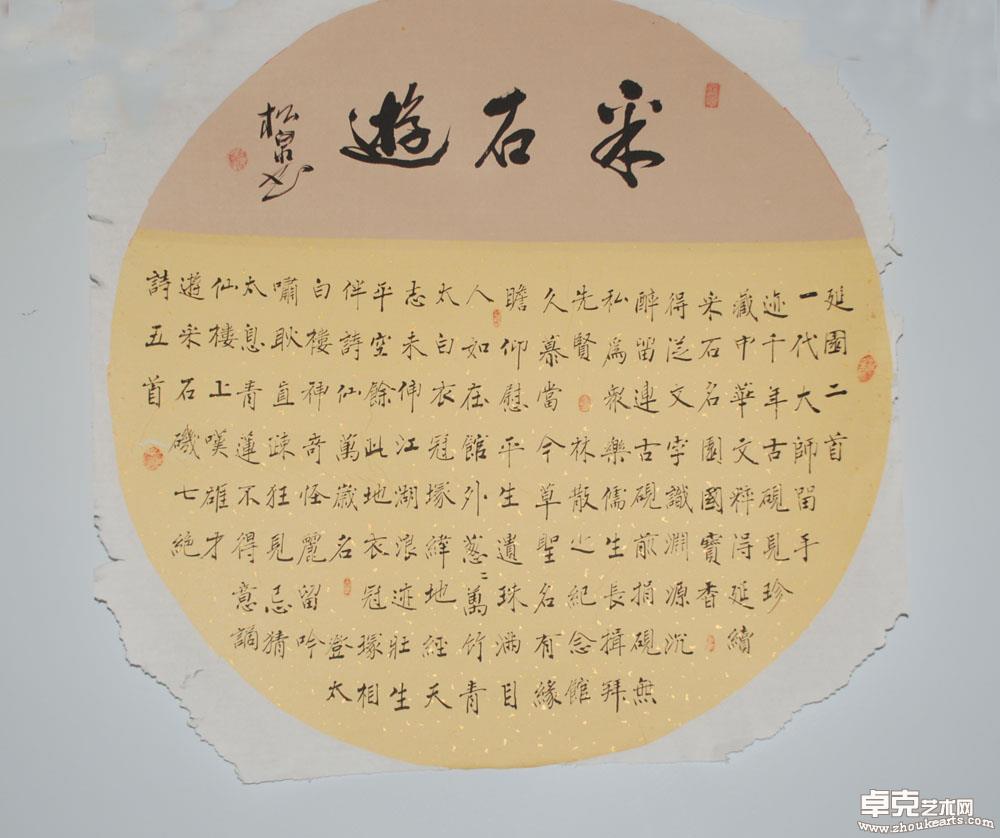 采石遊
松泉书
延園二首
一代大師留手
迹千年古硯見珍
藏中華文粹得延續
采石名園國寶香
得從文字識淵源沉
醉留連古硯前捐硯無
私為衆樂儒生長揖拜
先賢林散之紀念館
久慕當今草聖名有緣
瞻仰慰平生遺珠滿目
人如在館外葱〻萬竹青
太白衣冠塚緯地經天
志未伸江湖浪迹壯生
平空餘此地衣冠塚相
伴詩仙萬歲名登太
白樓神奇怪麗留吟
嘯耿直疎狂見忌猜
太息青蓮不得意謫
仙樓上嘆雄才
遊采石磯七絶
詩五首
卓克艺术网
www.zhoukearts.com